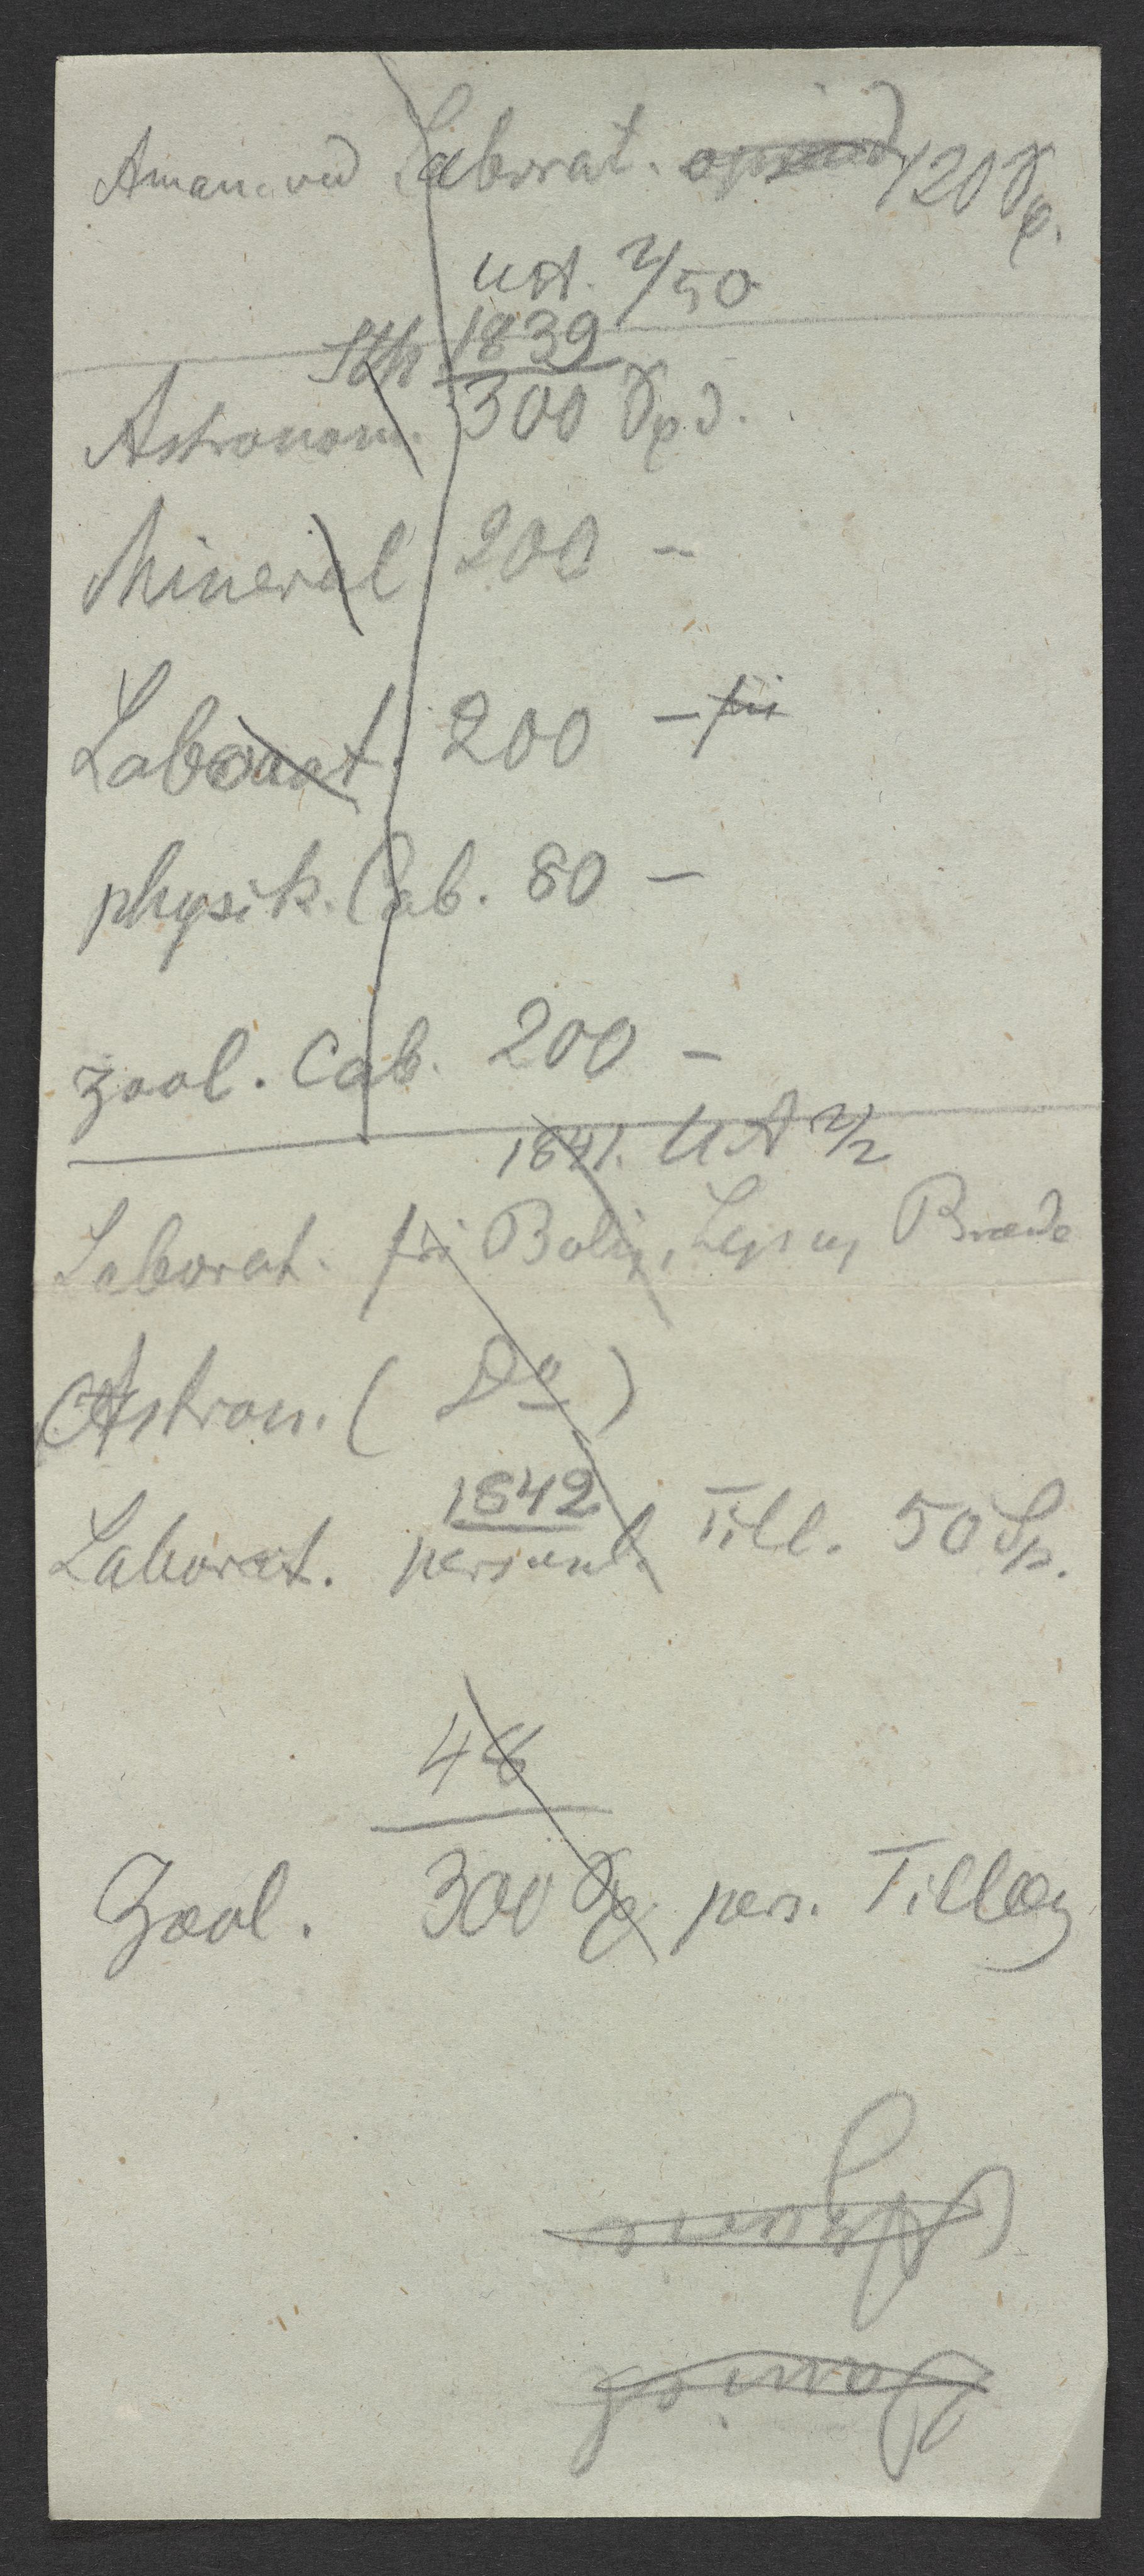 Aman. ved Laborat. 120
UA. 2/50
Sth. 1839
Astronom. 300 Spd.
Mineral 200 -
Laborat. 200 - fri
physik. Cab. 80 -
zool. Cab. 200 -
1841. UA 2/2
Laborat. fri Bolig, Lys og Brænde
Astron. ( Do )
1842
Laborat. personl. Till. 50 Sp.
48
Zool. 300 Sp. pers. Tillæg